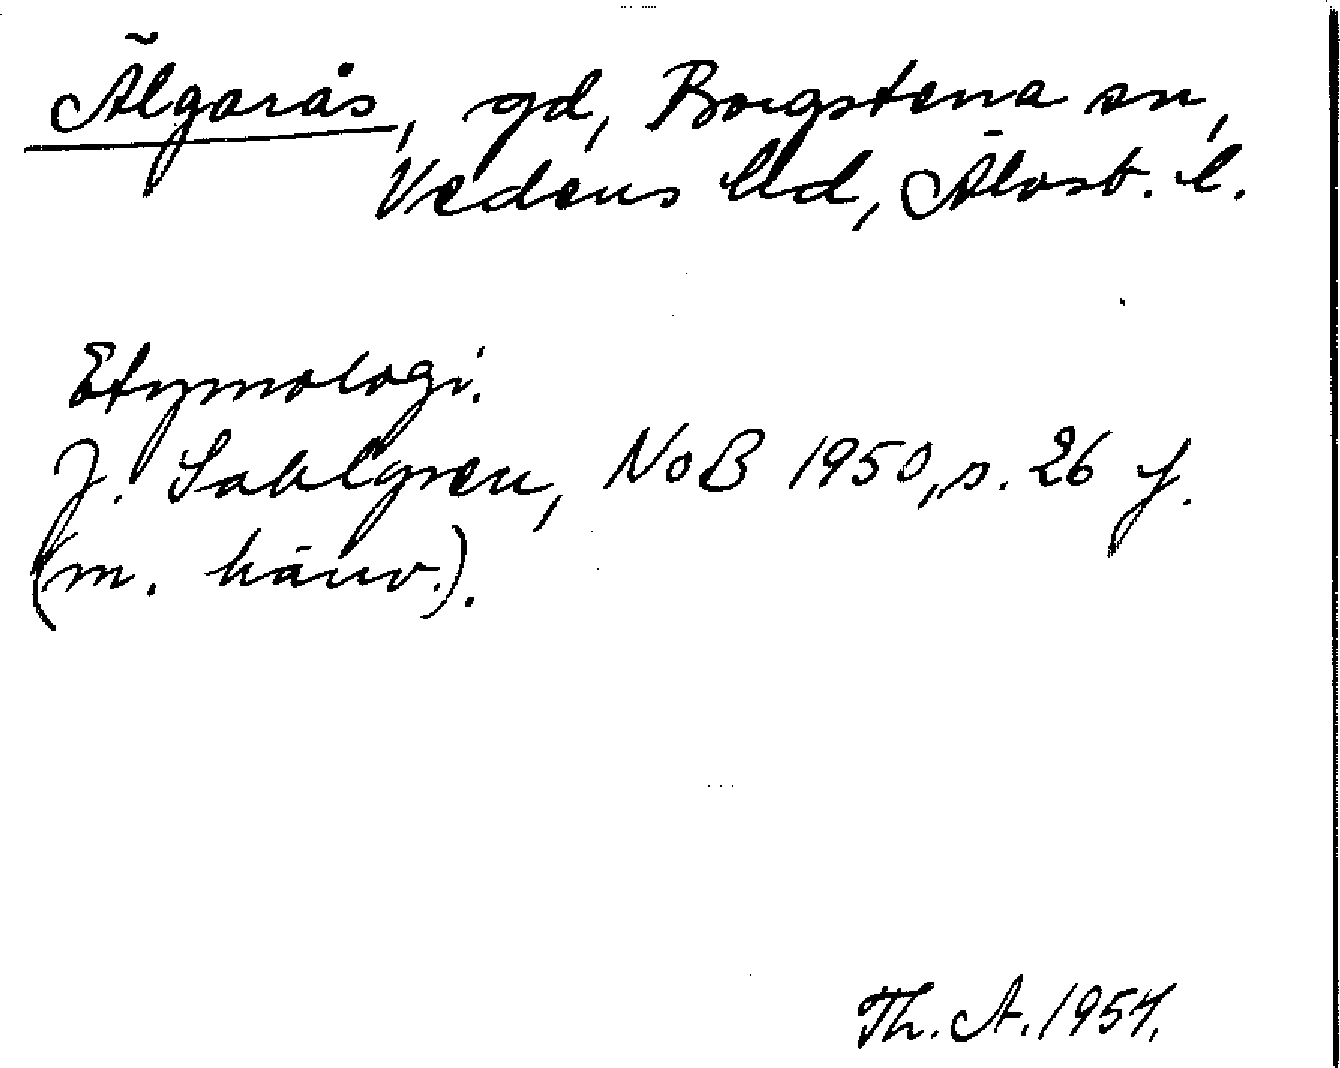 Älgarås, gd, Borgstena sn,
Vedens hd, Älvsb. l.
Etymologi.
J. Sahlgren, NoB 1950, s. 26 f.
(m. hänv.).
Th. A. 1954.